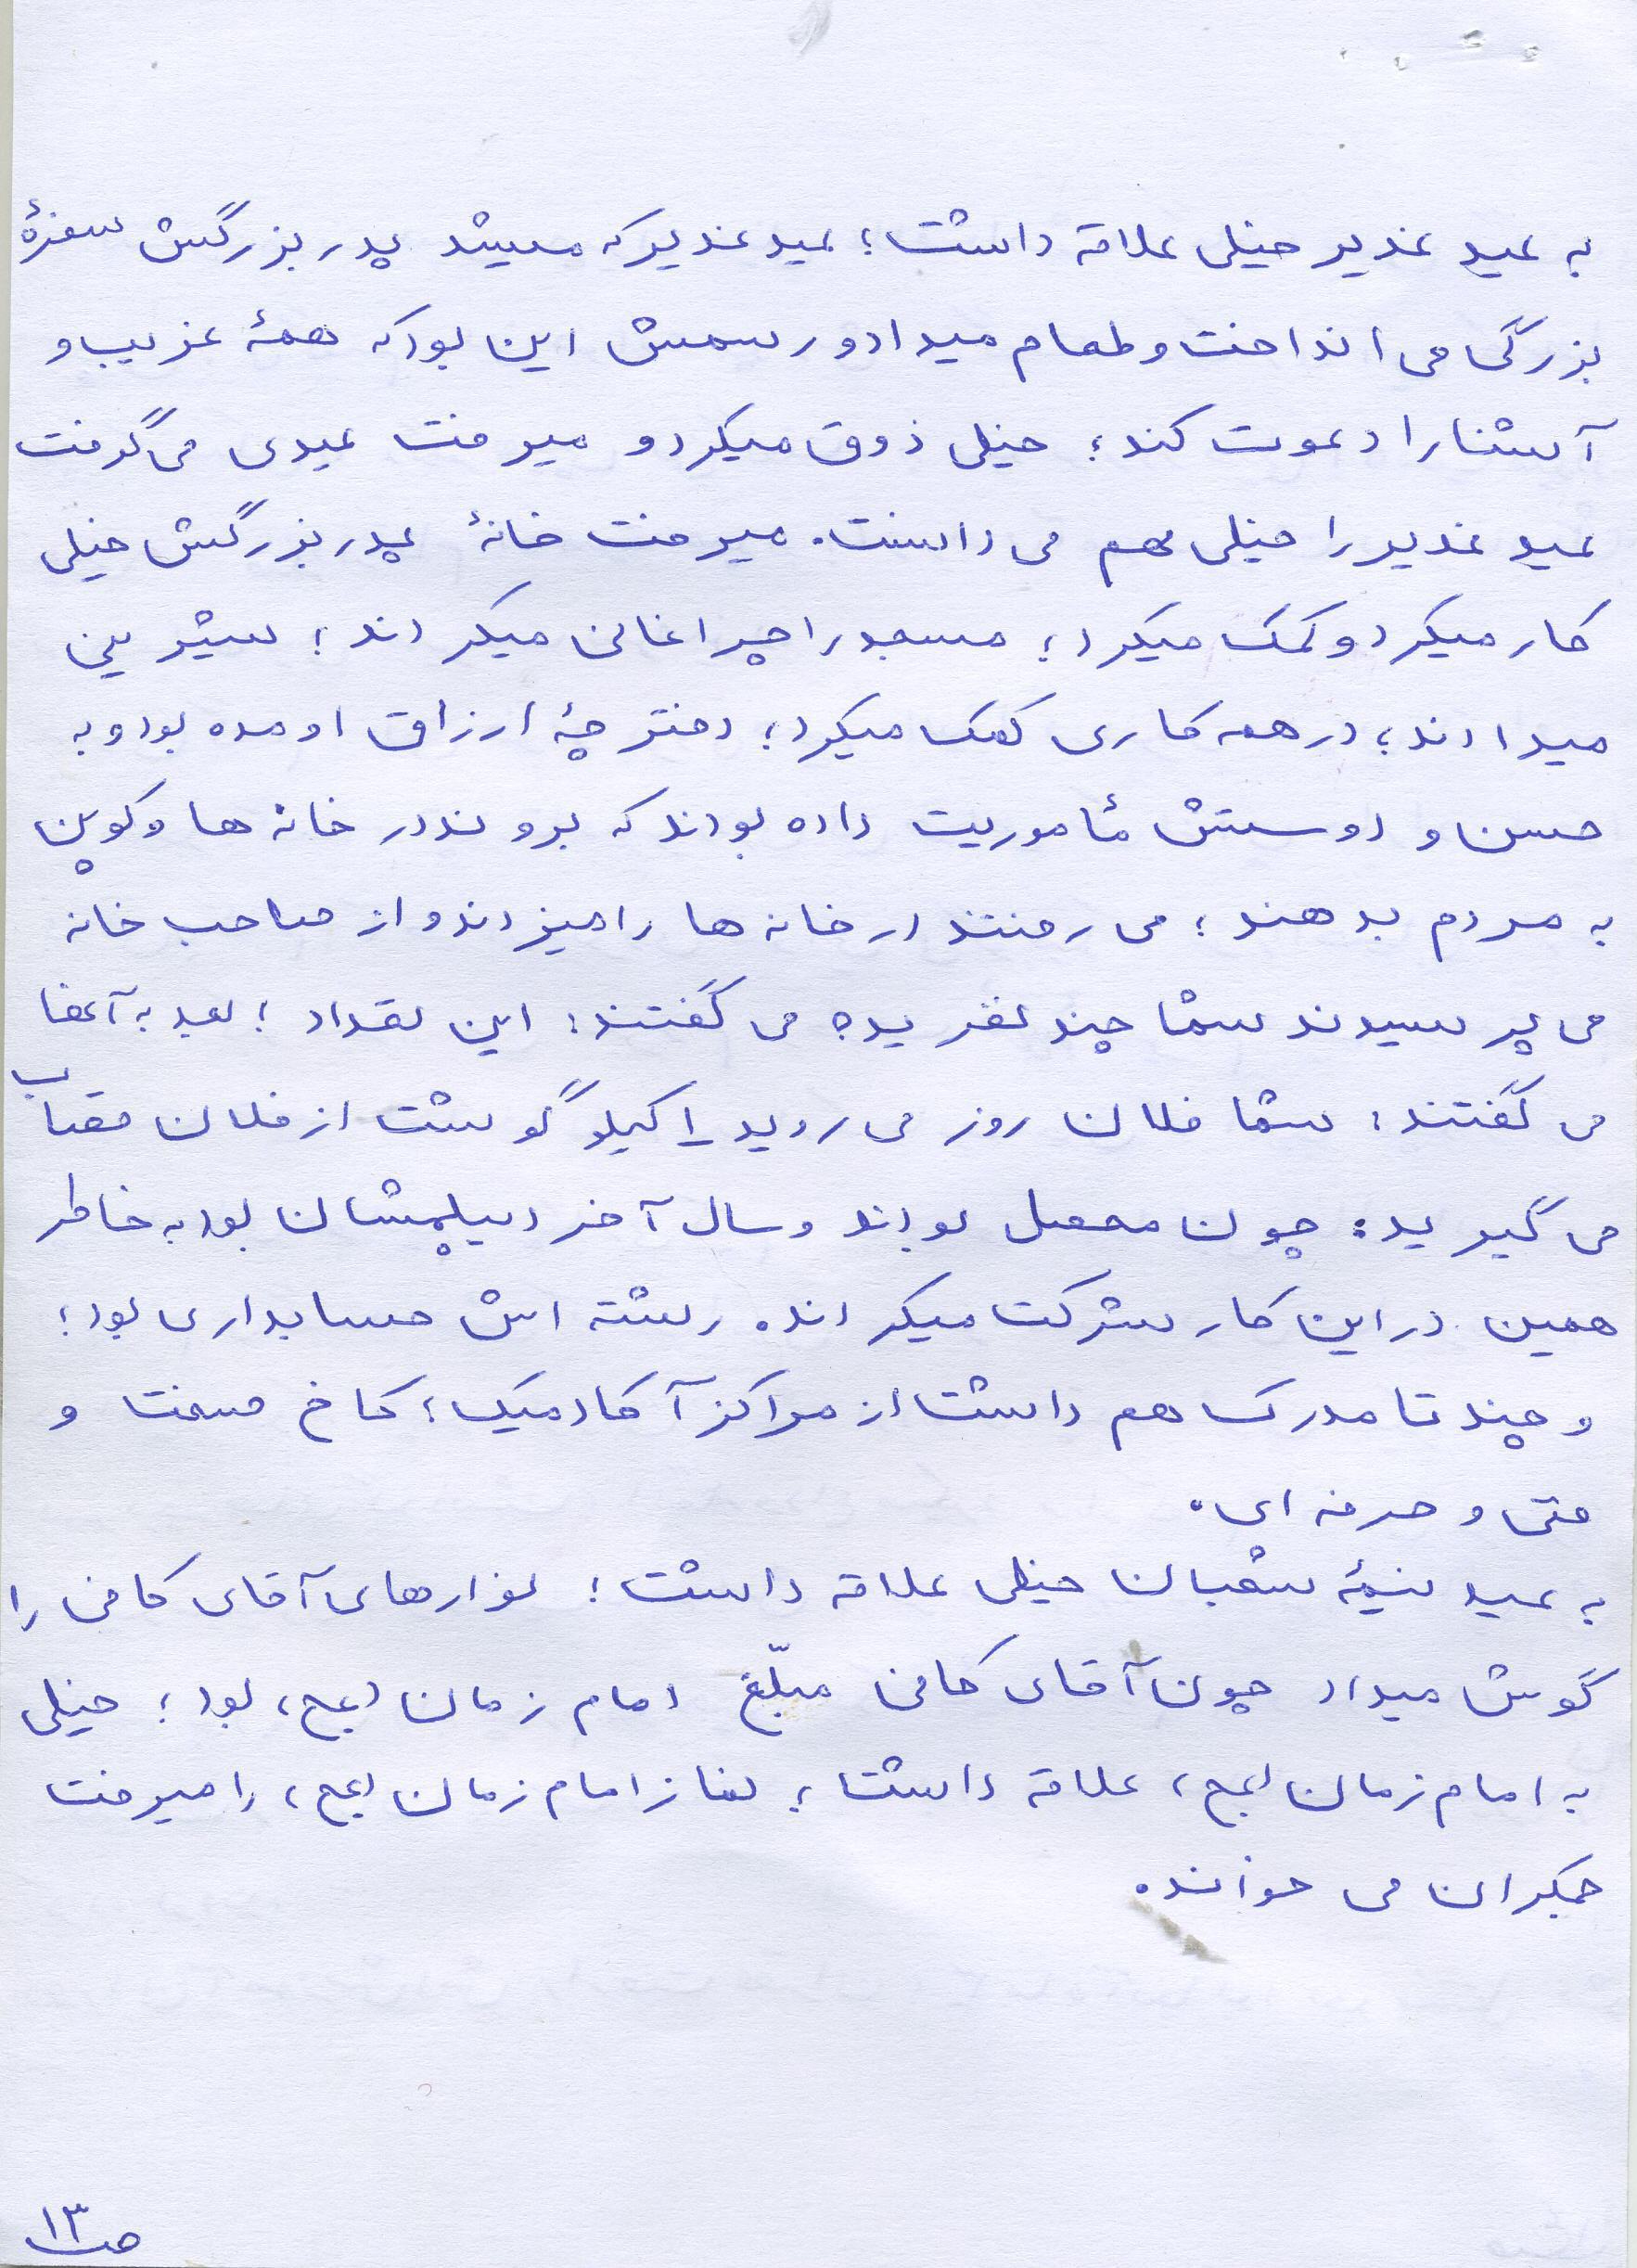 به عید غدیر خیلی علاقه داشت؛ عید غدیر که میشد پدر بزرگش سفرهٔ
بزرگی می انداخت و طعام میداد و رسمش این بود که همهٔ غریب و
آشنا را دعوت کند؛ خیلی ذوق میکرد و میرفت عیدی می گرفت
عید غدیر را خیلی مهم می دانست. میرفت خانهٔ پدر بزرگش خیلی
کار میکرد و کمک میکرد؛ مسجد را چراغانی میکردند؛ شیرینی
میدادند؛ در همه کاری کمک میکرد؛ دفترچهٔ ارزاق اومده بود و به
حسن و دوستش مأموریت داده بودند که بروند در خانه ها و کوپن
به مردم بدهند؛ می رفتند در خانه ها را میزدند و از صاحب خانه
می پرسیدند شما چند نفرید؟ می گفتند: این تعداد؛ بعد به آنها
می گفتند: شما فلان روز می روید ۱ کیلو گوشت از فلان قصاب
می گیرید: چون محصل بودند و سال آخر دیپلمشان بود به خاطر
همین در این کار شرکت میکردند. رشته اش حسابداری بود؛
و چند تا مدرک هم داشت از مراکز آکادمیک؛ کاخ صنعت و
فنی و حرفه ای.
به عید نیمهٔ شعبان خیلی علاقه داشت؛ نوارهای آقای کافی را
گوش میداد چون آقای کافی مبلّغ امام زمان (عج) بود؛ خیلی
به امام زمان (عج) علاقه داشت؛ نماز امام زمان (عج) را میرفت
جمکران می خواند.
ص۱۳